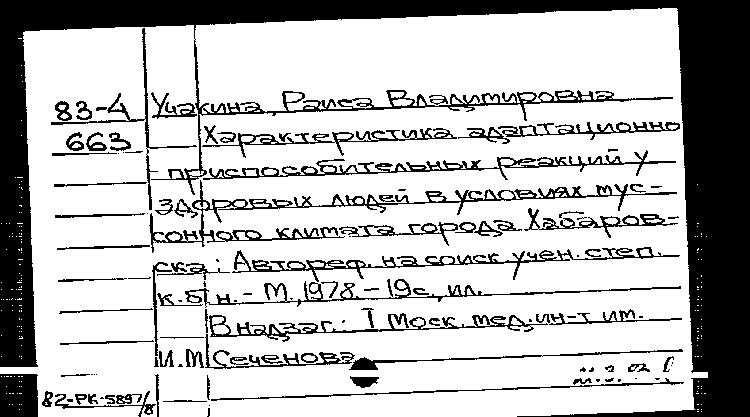 83-4 Учакина, Раиса Владимировна
663 Характеристика адаптационно
- приспособительных реакций у
здоровых людей в условиях мус-
сонного климата города Хабаров-
ска: Автореф. на соиск. учен. степ.
к.б.н. - М., 1978. - 19с., ил.
В надзаг.: I Моск. мед. ин-т им.
И.М. Сеченова
82-РК-5897/8